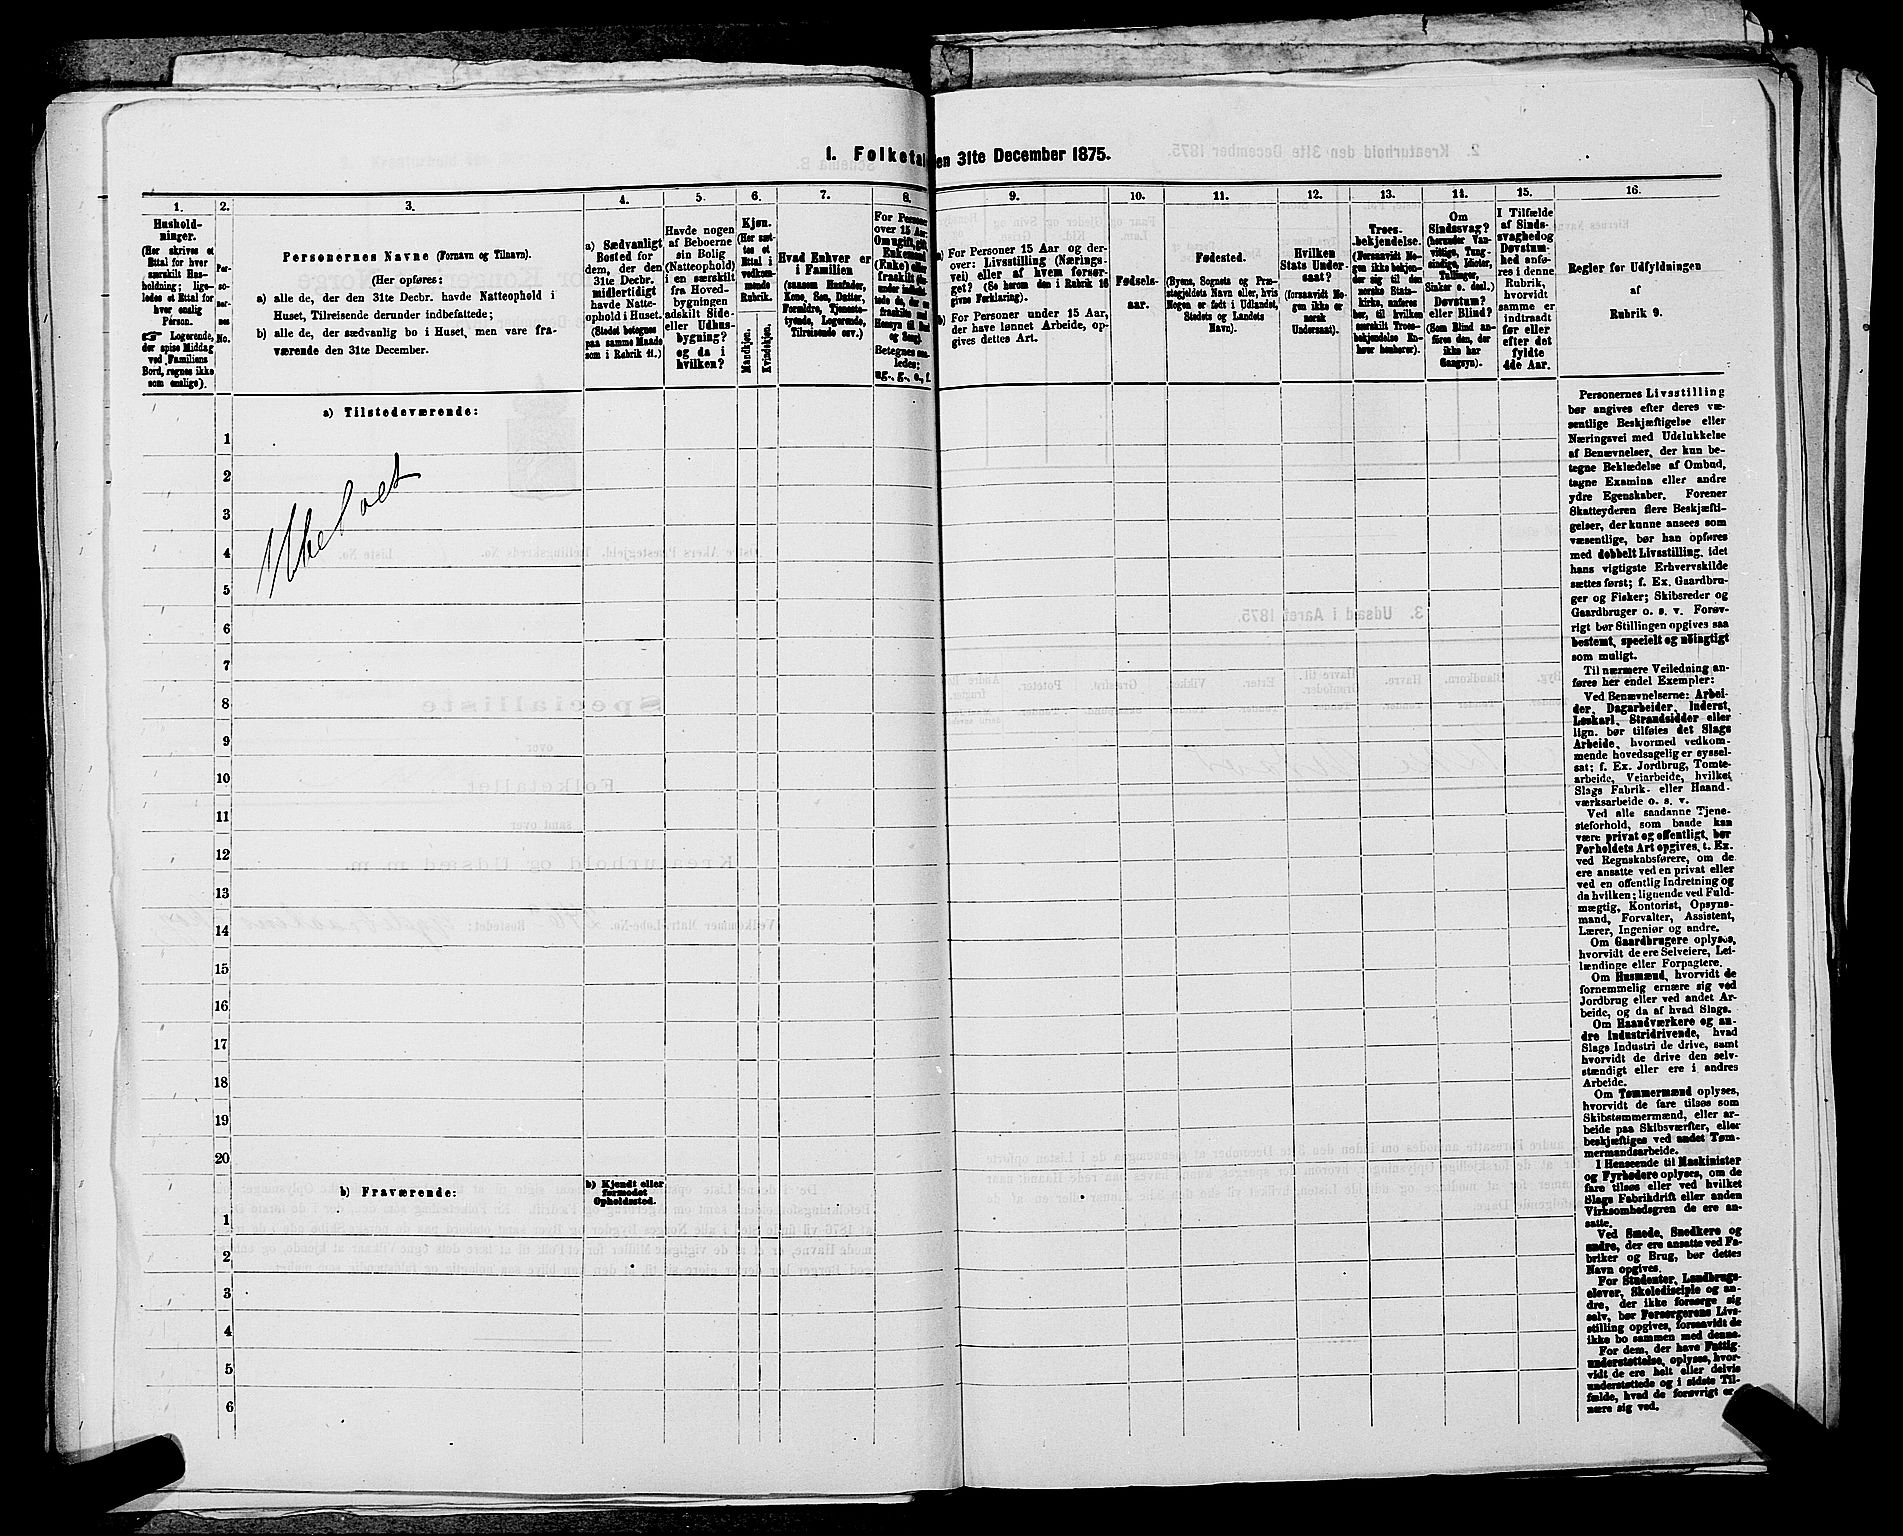 1. Folketal den 31te December 1875.
1.
2.
3.
4.
5.
6.
7.
8.
9.
10.
11.
12.
13.
14.
15.
16.
Hushold-
ninger.
(Her skrives et
Ettal for hver
særskilt Hus-
holdning; lige-
ledes et Ettal for
hver enslig
Person.
☞ Logerende,
der spise Middag
ved Familiens
Bord, regnes ikke
som enslige).
Per-
so-
ner-
nes
No.
Personernes Navne (Fornavn og Tilnavn).
(Her opføres:
a) alle de, der den 31te Decbr. havde Natteophold i
Huset, Tilreisende derunder indbefattede;
b) alle de, der sædvanlig bo i Huset, men vare fra-
værende den 31te December.
a) Sædvanligt
Bosted for
dem, der den
31te Decbr.
midlertidigt
havde Natte-
ophold i Huset.
(Stedet betegnes
paa samme Maade
som i Rubrik 11.)
Havde nogen
af Beboerne
sin Bolig
(Natteophold)
i en særskilt
fra Hoved-
bygningen
adskilt Side-
eller Udhus-
bygning?
og da i
hvilken?
Kjøn.
(Her sæt-
tes et
Ettal i
vedkom-
mende
Rubrik.
Mandkjøn.
Kvindekjøn.
Hvad Enhver er
i Familien
(saasom Husfader,
Kone, Søn, Datter,
Forældre, Tjeneste-
tyende, Logerende,
Tilreisende osv.)
For Personer
over 15 Aar:
Om ugift, gift,
Enkemand
(Enke) eller
fraskilt
Betegnes saa-
ledes:
ug., g., e., f.
a) For Personer 15 Aar og der-
over: Livsstilling (Nærings-
vei) eller af hvem forsør-
get? (Se herom den i Rubrik 16
givne Forklaring).
b) For Personer under 15 Aar,
der have lønnet Arbeide, op-
gives dettes Art.
Fødsels-
aar.
Fødested.
(Byens, Sognets og Præ-
stegjeldets Navn eller, hvis
Nogen er født i Udlandet,
Stedets og Landets
Navn).
Hvilken
Stats Under-
saat?
(forsaavidt No-
gen ikke er
norsk
Undersaat).
Troes-
bekjendelse.
(Forsaavidt No-
gen ikke bekjen-
der sig til den
norske Stats-
kirke, anføres
her, til hvilken
særskilt Troes-
bekjendelse En-
hver henhører).
Om
Sindssvag?
(herunder Van-
vittige, Tung-
sindige, Idioter,
Tullinger,
Sinker o. desl.)
Døvstum?
eller Blind?
(Som Blind an-
føres den, der
ikke har
Gangsyn).
I Tilfælde
af Sinds-
svaghed og
Døvstum-
hed anfø-
res i denne
Rubrik,
hvorvidt
samme er
indtraadt
før eller
efter det
fyldte
4de Aar.
Regler for Udfyldningen
af
Rubrik 9.
a) Tilstedeværende:
1
2
3
4
5
6
7
8
9
10
11
12
13
14
15
16
17
18
19
20
b) Fraværende:
b) Kjendt eller
formodet
Opholdssted.
1
2
3
4
5
6
Personernes Livsstilling
bør angives efter deres væ-
sentlige Beskjæftigelse eller
Næringsvei med Udelukkelse
af Benævnelser, der kun be-
tegne Beklædelse af Ombud,
tagne Examina eller andre
ydre Egenskaber. Forener
Skatteyderen flere Beskjæfti-
gelser, der kunne ansees som
væsentlige, bør han opføres
med dobbelt Livsstilling, idet
hans vigtigste Erhvervskilde
sættes først; f. Ex. Gaardbru-
ger og Fisker; Skibsreder og
Gaardbruger o. s. v. Forøv-
rigt bør Stillingen opgives saa
bestemt, specielt og nöiagtigt
som muligt.
Til nærmere Veiledning an-
føres her endel Exempler:
Ved Benævnelserne: Arbei-
der, Dagarbeider, Inderst,
Løskarl, Strandsidder eller
lign. bør tilføies det Slags
Arbeide, hvormed vedkom-
mende hovedsagelig er syssel-
sat; f. Ex. Jordbrug, Tomte-
arbeide, Veiarbeide, hvilket
Slags Fabrik- eller Haand-
værksarbeide o. s. v.
Ved alle saadanne Tjene-
steforhold, som baade kan
være privat og offentligt, bør
Forholdets Art opgives, t. Ex.
ved Regnskabsførere, om de
ere ansatte ved en privat eller
ved en offentlig Indretning og
da hvilken; lignende ved Fuld-
mægtig, Kontorist, Opsyns-
mand, Forvalter, Assistent,
Lærer, Ingeniør og andre.
Om Gaardbrugere oplyses,
hvorvidt de ere Selveiere, Lei-
lændinge eller Forpagtere.
Om Husmænd, hvorvidt de
fornemmelig ernære sig ved
Jordbrug eller ved andet Ar-
beide, og da af hvad Slags.
Om Haandværkere og an-
dre Industridrivende, hvad
Slags Industri de drive, samt
hvorvidt de drive den selv-
stændigt eller ere i andres
Arbeide.
Om Tømmermænd oplyses,
hvorvidt de fare tilsøs som
Skibstømmermænd, eller ar-
beide paa Skibsværfter, eller
beskjæftiges ved andet Tøm-
mermandsarbeide.
I Henseende til Maskinister
og Fyrbødere oplyses, om de
fare tilsøs eller ved hvilket
Slags Fabrikdrift eller anden
Virksomhedsgren de ere an-
satte.
Ved Smede, Snedkere og
andre, der ere ansatte ved Fa-
briker og Brug, bør dettes
Navn opgives.
For Studenter, Landbrugs-
elever, Skoledisciple og an-
dre, der ikke forsørge sig
selv, bør Forsørgerens Livs-
stilling opgives, forsaavidt de
ikke bo sammen med denne.
For dem, der have Fattig-
understøttelse, oplyses, hvor-
vidt de ere helt eller delvis
understøttede og i sidste Til-
fælde, hvad de forøvrigt er-
nære sig ved.